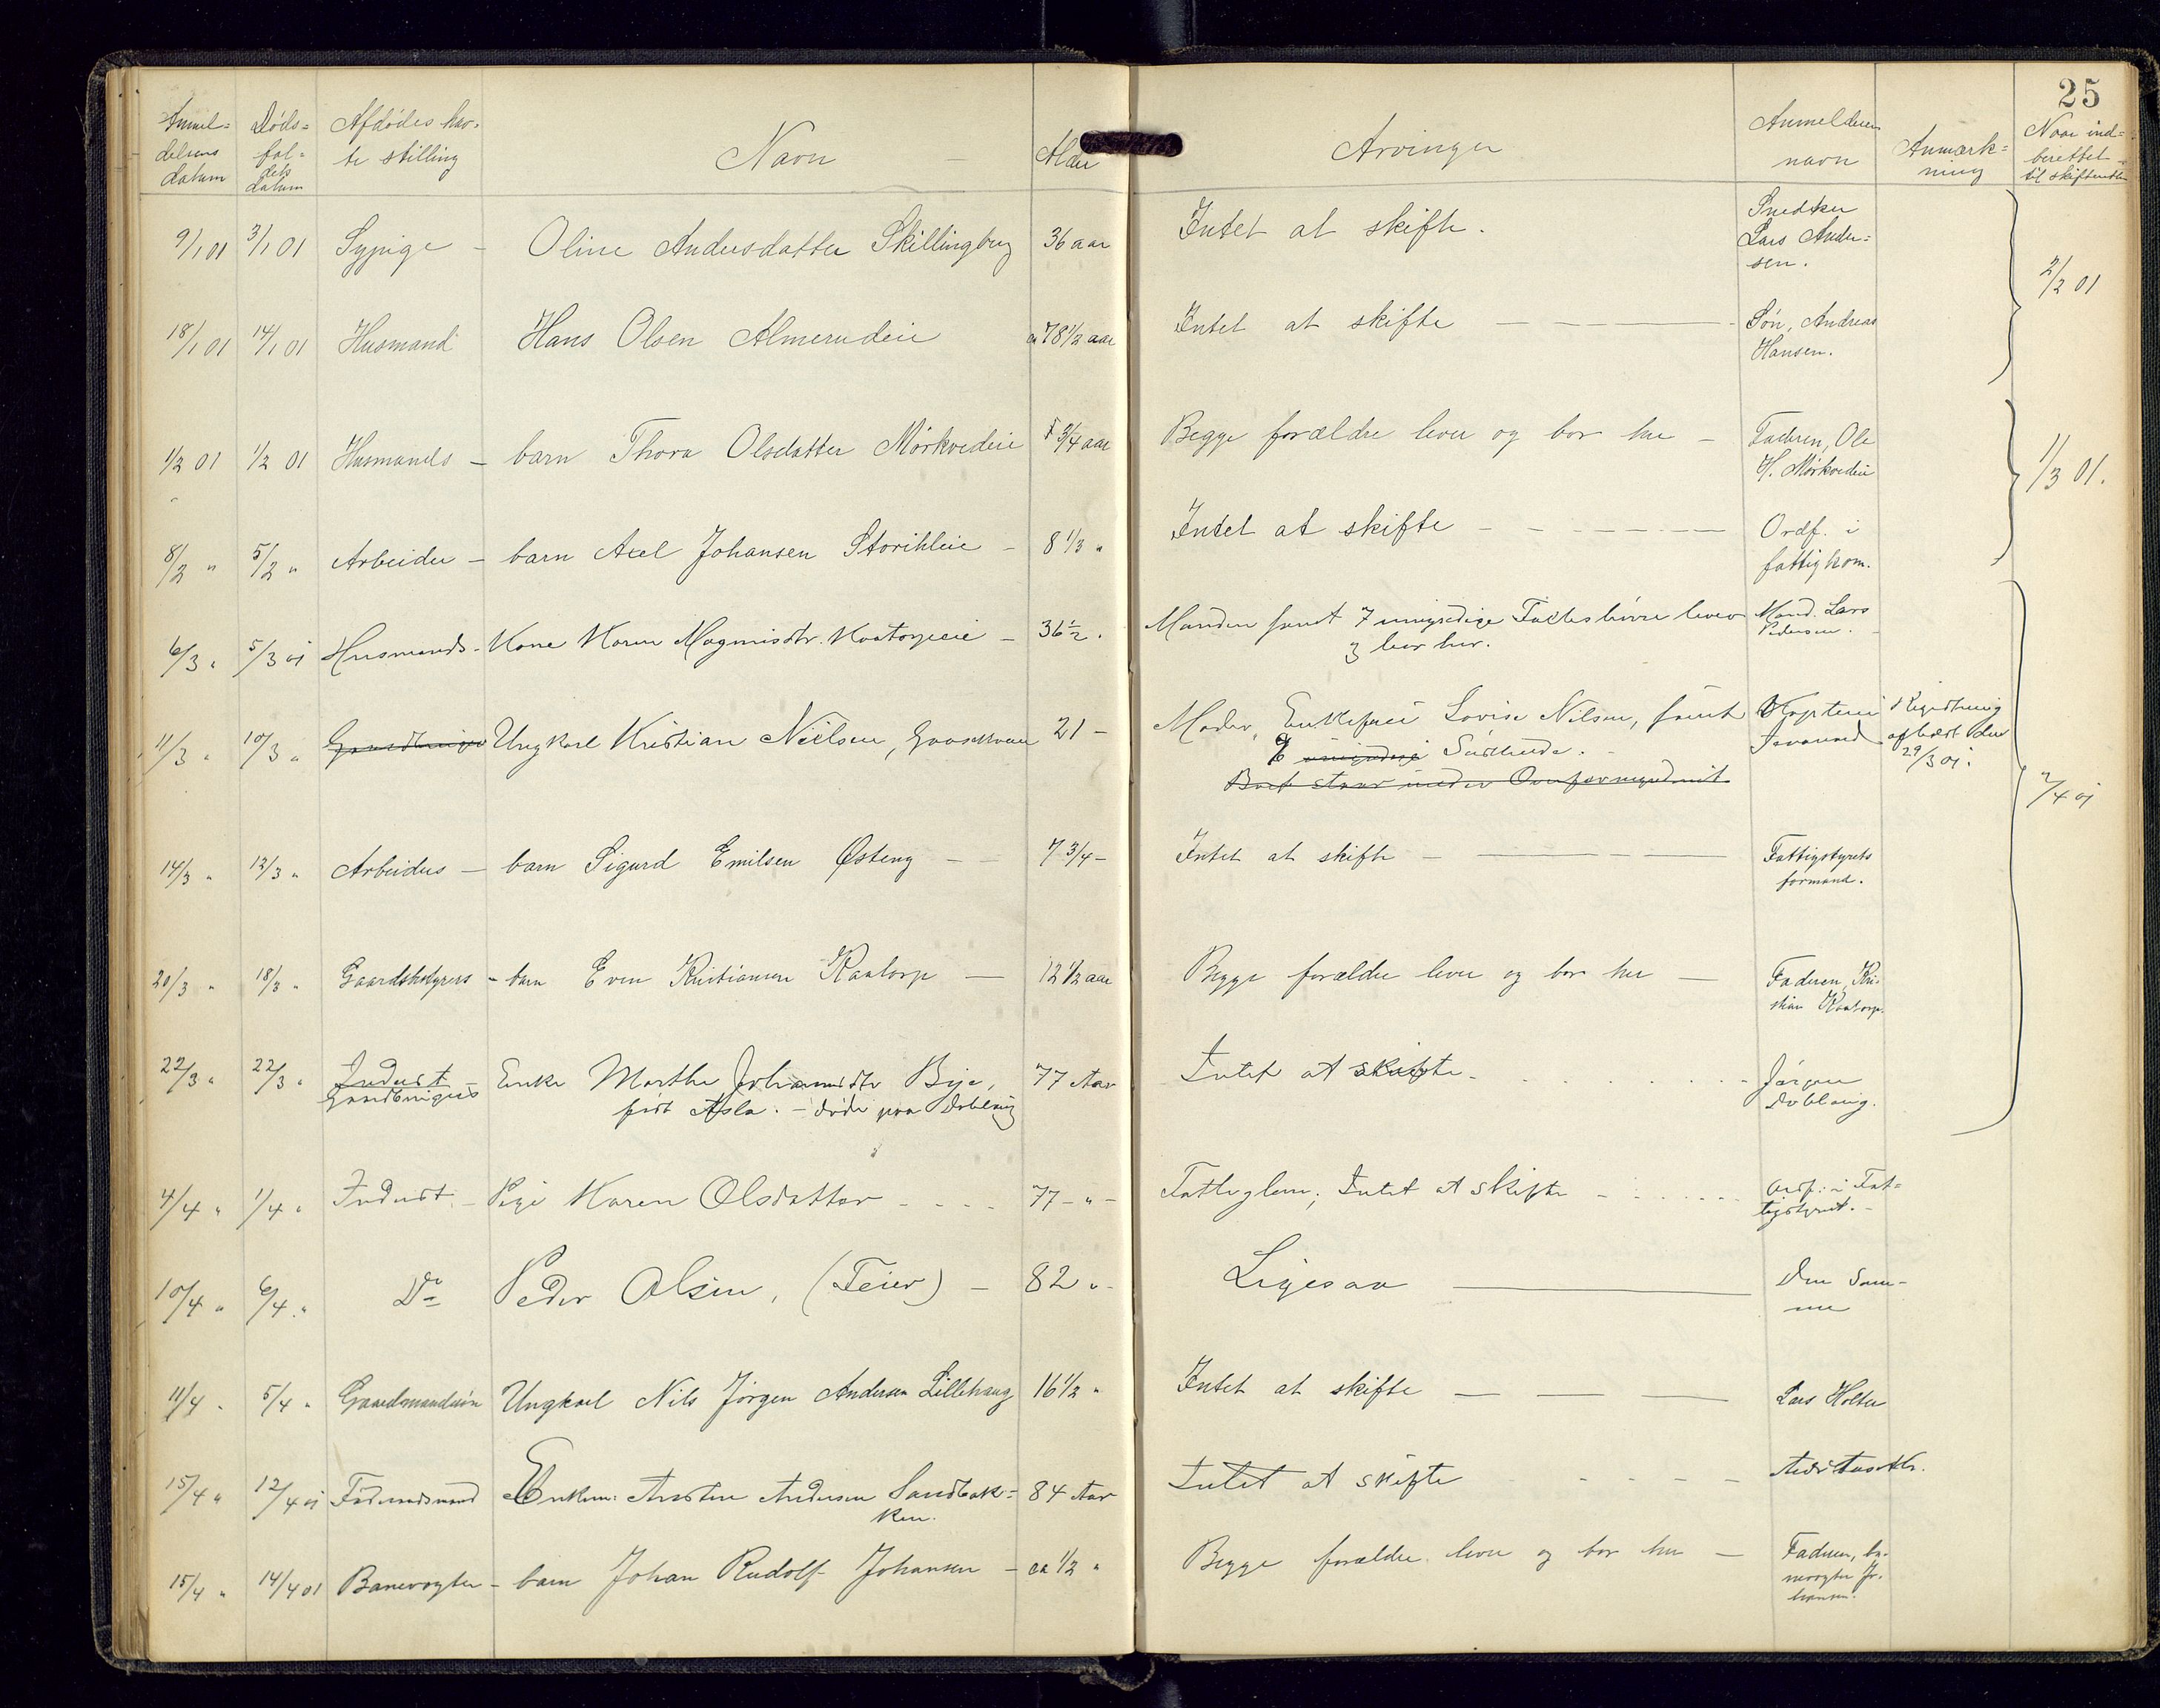 25
Anmel=
delsens
datum
Døds=
fal=
dets
datum
Afdødes hav=
te stilling
Navn
Alder
Arvinger
Anmelderens
navn
Anmærk=
ning
Naar ind=
berettet
til skifteretten
9/1 01 3/1 01 Sypige – Oline Andersdatter Skillingbug 36 aar Intet at skifte. Snedker
Lars Ander=
sen.
2/2 01
18/1 01 14/1 01 Husmand Hans Olsen Almerudeie 78 1/2 aar Intet at skifte — Søn, Andreas
Hansen.
1/2 01 1/2 01 Husmands – barn Thora Olsdatter Mörkvedeie 3/4 aar Begge forældre lever og bor her – Faderen, Ole
H. Mörkvedeie
1/3 01.
8/2 " 5/2 " Arbeider – barn Axel Johansen – 8 1/3 " Intet at skifte — Ordf. i
fattigkom.
6/3 " 5/3 01 Husmands- Kone Karen Magnusdtr. – 36 1/2 . Manden samt 7 umyndige lever Mand. Lars
Pedersen.
og bor her.
11/3 " 10/3 " Ungkarl Kristian Nielsen, 21 – Moder, Enkefrue Lovise Nilsen, samt
6 umyndige Södskende.
Boet staar under Overformynderiet
29/3 01.
2/4 01
14/3 " 12/3 " Arbeiders – barn Sigurd Emilsen Østeng — 7 3/4 – Intet at skifte — Fattigstyrets
formand.
20/3 " 18/3 " Gaardsbestyrers – barn Even Kristiansen Kaatorp — 12 1/2 aar Begge forældre lever og bor her — Faderen, Kri=
stian Kaatorp.
22/3 " 22/3 " Inderst – Enke Marthe Johannesdtr Bye, 77 Aar Intet at skifte. Jörgen
Dobloug.
Gaardbrugers født Asla. – døde paa Dobloug
4/4 " 1/4 " Inderst – Pige Karen Olsdatter 77 – " – Fattiglem; Intet at skifte Ordf. i Fat=
tigstyret.
10/4 " 6/4 " Do Peder Olsen, (Feier) – 82 " Ligesaa — Den Sam-
me
11/4 . 5/4 " Gaardmandssön Ungkarl Nils Jörgen Andersen Lillehaug 16 1/2 " Intet at skifte — Lars Holter
15/4 " 12/4 01 Föderaadsmand Enkem. Andersen Sandbak=
ken. 84 Aar Intet at skifte
15/4 " 14/4 01 Banevogter – barn Johan Rudolf Johansen – ca 1/2 " Begge forældre lever og bor her — Faderen, ba-
nevogter Jo-
hansen.